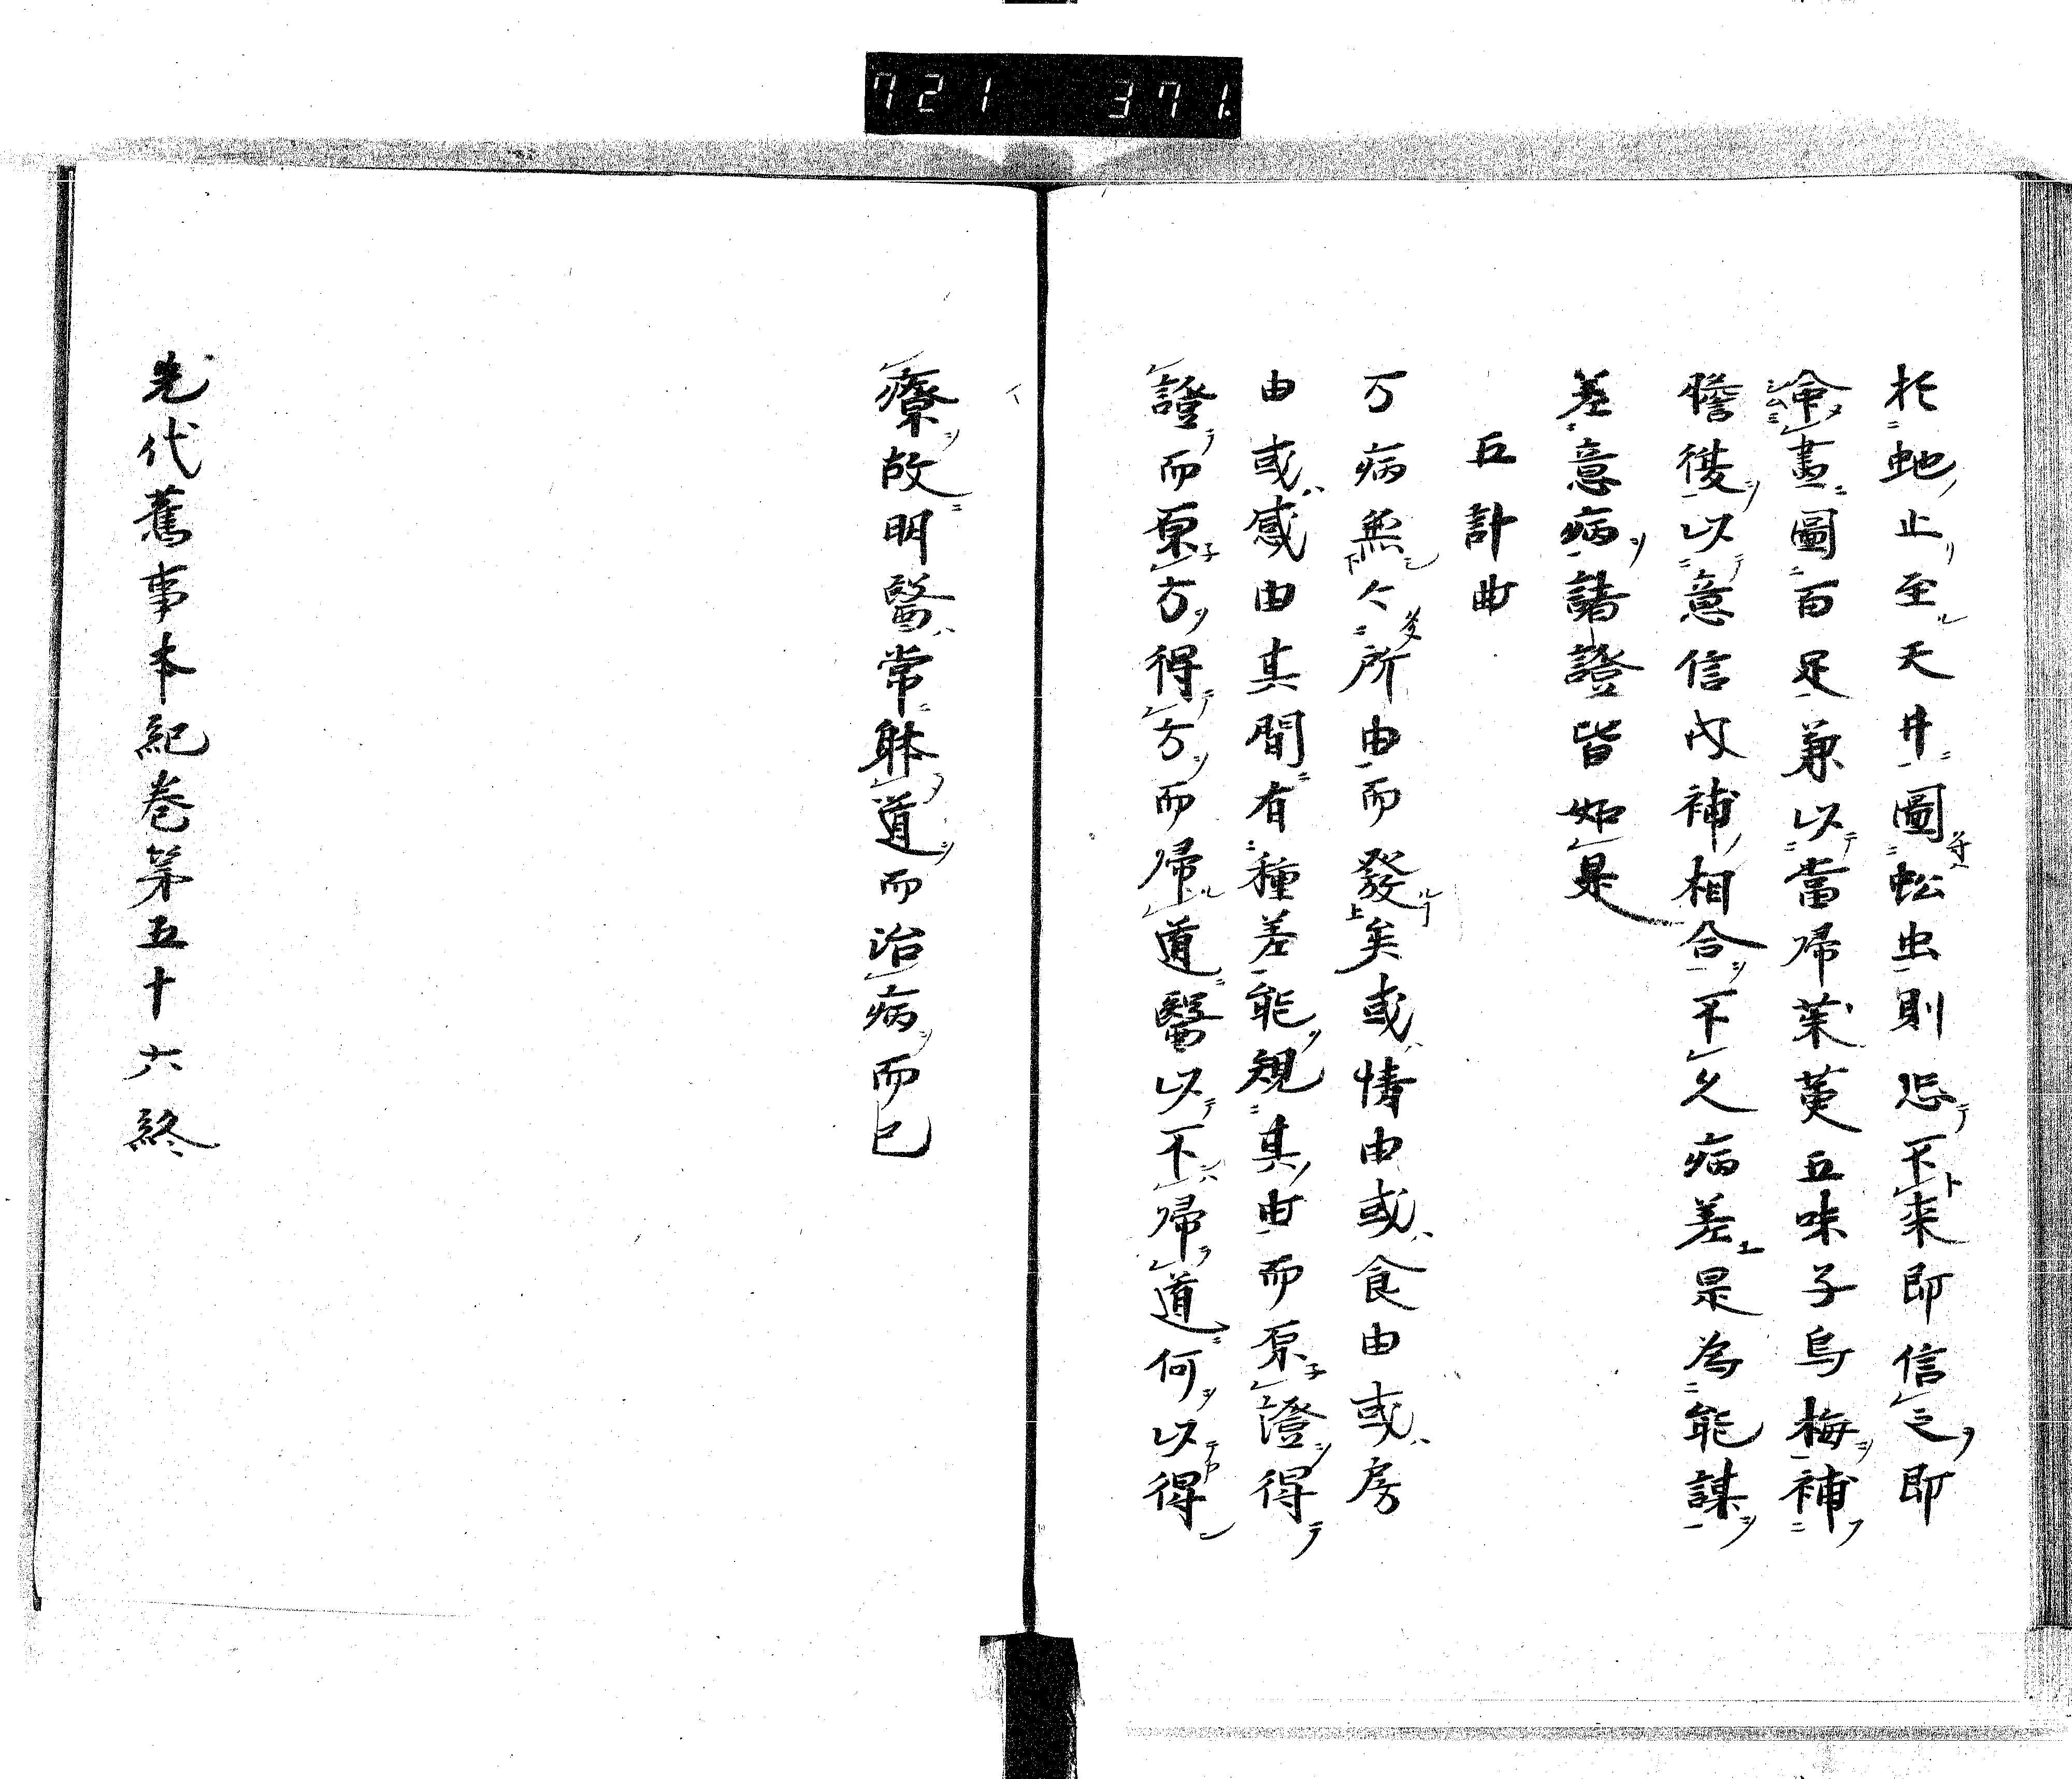 721 371.
於虵止至天井圖蚣虫則恐不来即信之即
命畫圖百足兼以當帰茱萸五味子烏梅補
膽復以意信内補相合不久病差是為能謀
差意病諸證皆如是
五計曲
万病無々所由而發矣或情由或食由或房
由或感由其間有種差能規其由而原證得
證而原方得方而帰道醫以不帰道何以得
療故明醫常躰道而治病而已
先代舊事本紀巻第五十六終